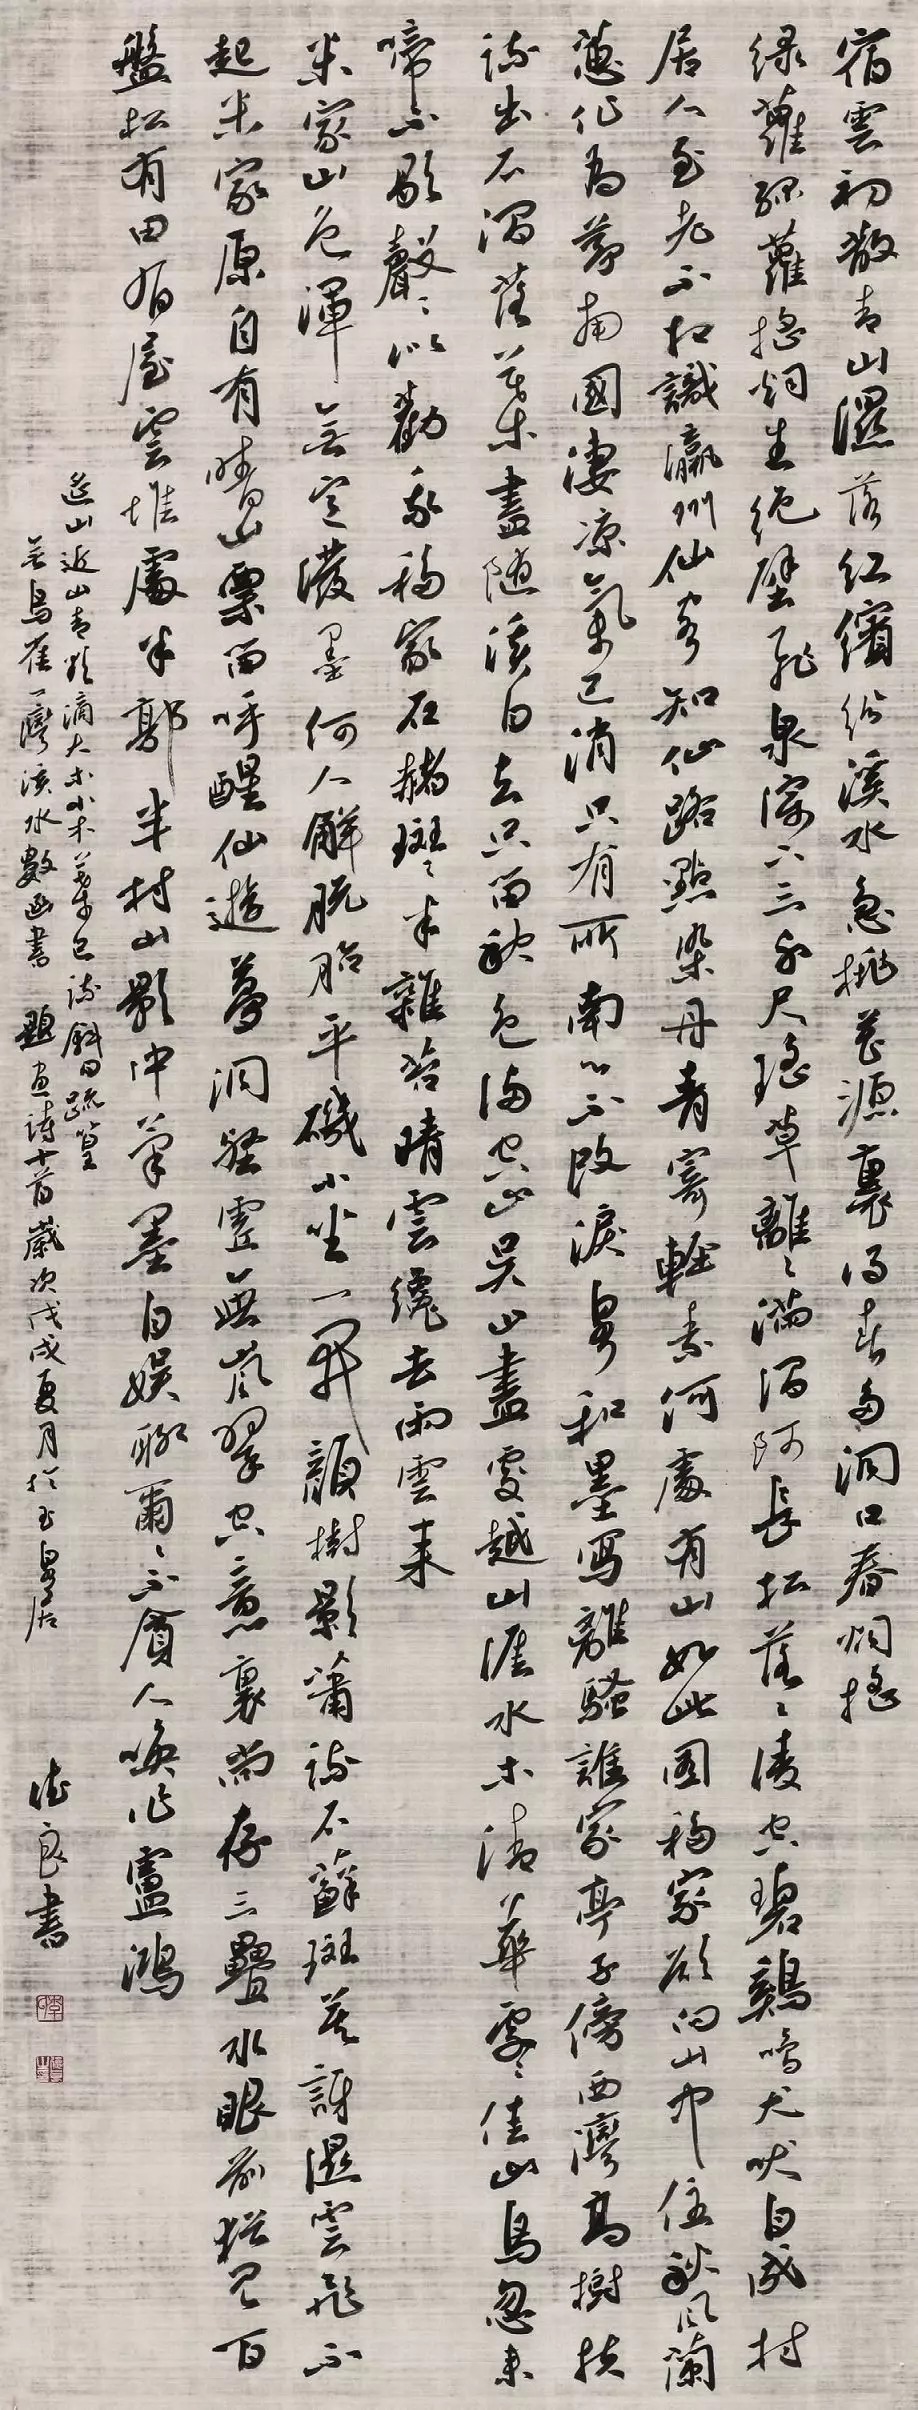 宿雲初散青山濕落紅繽紛溪水急桃花源裏得春多洞口春烟搖
綠蘿綠蘿搖烟生絕壁飛泉瀉下三千尺瑤草離離滿澗阿長松落落凌空碧鷄鳴犬吠自成村
居人至老不相識瀛洲仙客知仙路點染丹青寄輕素何處有山如此圖移家欲向山中住秋風蘭
蕙化為茅南國凄凉氣已消只有所南心不改淚泉和墨寫離騷誰家亭子傍西灣高樹扶
疏出石間落葉盡隨溪白去只留秋色滿空山吳山盡處越山涯水木清華處處佳山鳥忽來
啼不歇聲聲似勸我移家石赭斑斑半雜苔晴雲纔去雨雲來
米家山色渾無定潑墨何人解脫胎平磯小坐一開顏樹影蕭疏石蘚斑莫訝濕雲飛不
起米家原自有晴山粟留呼醒仙遊夢洞壑虛無嵐翠空意裏尚存三疊水眼前猶見百
盤松有田有屋雲堆處半郭半村山影中筆墨自娛聊爾爾不賓人喚作盧鴻
遠山近山青欲滴大木小木葉已疏斜日疏篁
無鳥雀一灣溪水數函書 題畫詩十首歲次戊戌夏月於玉泉居
德良書